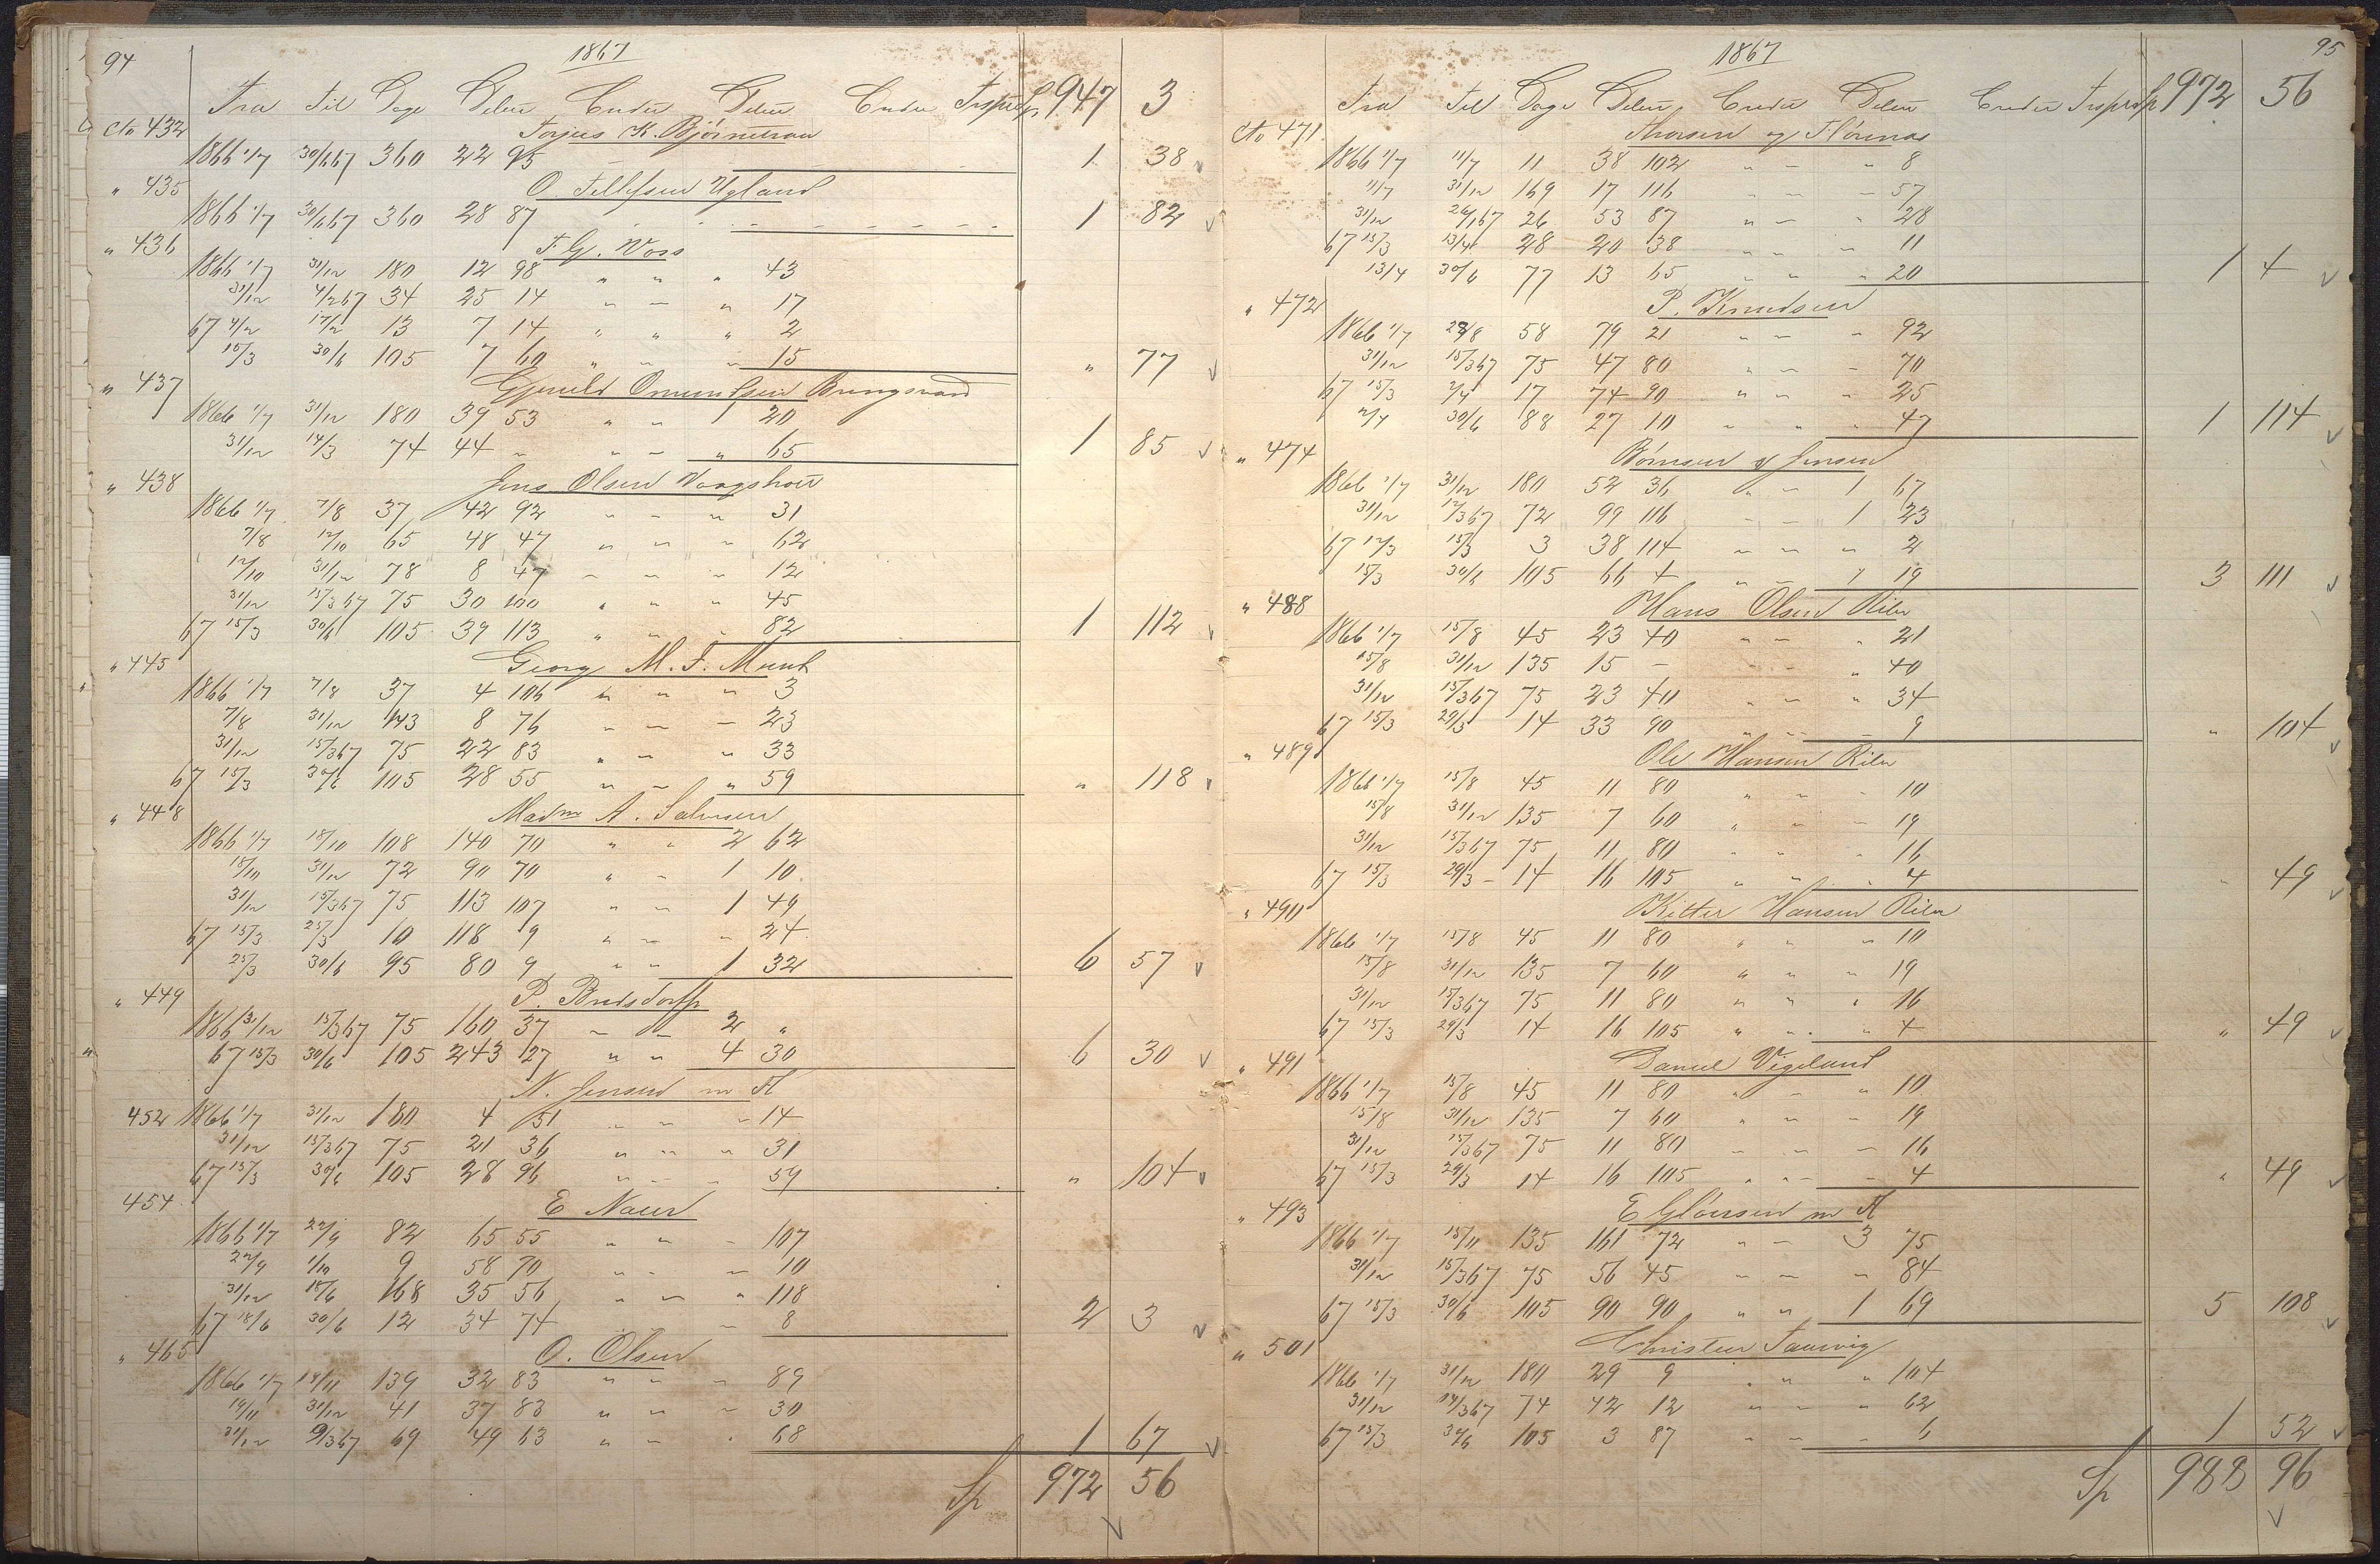 94
1867
Fra Til Dage Debet Credit Debet Credit Trspt Sp 947 3
Cto 432 Torjus K. Bjørnetraa
1866 1/7 30/6 67 360 22 95 1 38
" 435 O. Tellefsen Ugland
1866 1/7 30/6 67 360 28 87 1 82
" 436 F. G. Voss
1866 1/7 31/12 180 12 98 " " " 43
31/12 4/2 67 34 25 14 " " " 17
67 4/2 17/2 13 7 14 " " " 2
15/3 30/6 105 7 60 " " " 15 " 77
" 437 Gjeruld Omundsen Bringsvær
1866 1/7 31/12 180 39 53 " " 1 20
31/12 14/3 74 44 " " " " 65 1 85
" 438 Jens Olsen Vaagsholt
1866 1/7 7/8 37 42 92 " " " 31
7/8 12/10 65 48 47 " " " 62
12/10 31/12 78 8 47 " " " 12
31/12 15/3 67 75 30 100 " " " 45
67 15/3 30/6 105 39 113 " " " 82 1 112
" 445 Georg M. F. Munk
1866 1/7 7/8 37 4 106 " " " 3
7/8 31/12 143 8 76 " " " 23
31/12 15/3 67 75 22 83 " " " 33
67 15/3 30/6 105 28 55 " " " 59 " 118
" 448 Madm A. Salvesen
1866 1/7 18/10 108 140 70 " " 2 62
18/10 31/12 72 90 70 " " 1 10
31/12 15/3 67 75 113 107 " " 1 49
67 15/3 25/3 10 118 9 " " " 24
25/3 30/6 95 80 9 " " 1 32 6 57
" 449 P. Bredsdorff
1866 31/12 15/3 67 75 160 37 " " 2 "
67 15/3 30/6 105 243 27 " " 4 30 6 30
N. Jensen m A
452 1866 1/7 31/12 180 4 51 " " " 14
31/12 15/3 67 75 21 36 " " " 31
67 15/3 30/6 105 28 96 " " " 59 " 104
454 E Naur
1866 1/7 22/9 82 65 55 " " " 107
22/9 1/10 9 58 70 " " " 10
31/12 18/6 168 35 56 " " " 118
67 18/6 30/6 12 34 74 " 8 2 3
" 465 O. Olsen
1866 1/7 19/11 139 32 83 " " " 89
19/11 31/12 41 37 83 " " " 30
31/12 9/3 67 69 49 63 " " " 68 1 67
Sp 972 56
95
1867
Fra Til Dage Debet Credit Debet Credit Trsprt Sp 972 56
Cto 471 Thorsen og Flörenæs
1866 1/7 11/7 11 38 102 " " " 8
11/7 31/12 169 17 116 " " " 57
31/12 26/1 67 26 53 87 " " " 28
67 15/3 13/4 28 20 38 " " " 11
13/4 30/6 77 13 65 " " " 20 1 4
" 472 P. Knudsen
1866 1/7 28/8 58 79 21 " " " 92
31/12 15/3 67 75 47 80 " " " 70
67 15/3 2/4 17 74 90 " " " 25
2/4 30/6 88 27 10 " " " 47 1 114
" 474 Börresen & Jensen
1866 1/7 31/12 180 52 36 " " 1 67
31/12 12/3 67 72 99 116 " " 1 23
67 12/3 15/3 3 38 114 " " " 2
15/3 30/6 105 66 4 " " 1 19 3 111
" 488 Hans Olsen Riber
1866 1/7 15/8 45 23 40 " " " 21
15/8 31/12 135 15 " " " " 40
31/12 15/3 67 75 23 40 " " " 34
67 15/3 29/3 14 33 90 " " " 9 " 104
" 489 Ole Hansen Riber
1866 1/7 15/8 45 11 80 " " " 10
15/8 31/12 135 7 60 " " " 19
31/12 15/3 67 75 11 80 " " " 16
67 15/3 29/3 14 16 105 " " " 4 " 49
" 490 Kittel Hansen Riber
1866 1/7 15/8 45 11 80 " " " 10
15/8 31/12 135 7 60 " " " 19
31/12 15/3 67 75 11 80 " " " 16
67 15/3 29/3 14 16 105 " " " 4 " 49
" 491 Daniel Vigeland
1866 1/7 15/8 45 11 80 " " " 10
15/8 31/12 135 7 60 " " " 19
31/12 15/3 67 75 11 80 " " " 16
67 15/3 29/3 14 16 105 " " " 4 " 49
" 493 E m A
1866 1/7 15/11 135 161 72 " " 3 75
31/12 15/3 67 75 56 45 " " " 84
67 15/3 30/6 105 90 90 " " 1 69 5 108
" 501 Christen
1866 1/7 31/12 180 29 9 " " " 104
31/12 14/3 67 74 42 12 " " " 62
67 15/3 30/6 105 3 87 " " " 6 1 52
Sp 988 96